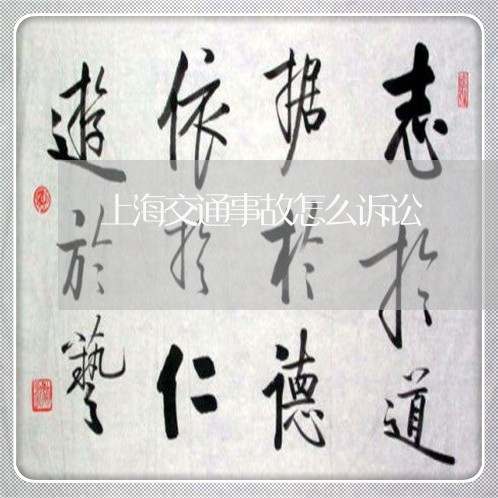 志於道
据於德
依於仁
遊於藝
上海交通事故怎么诉讼